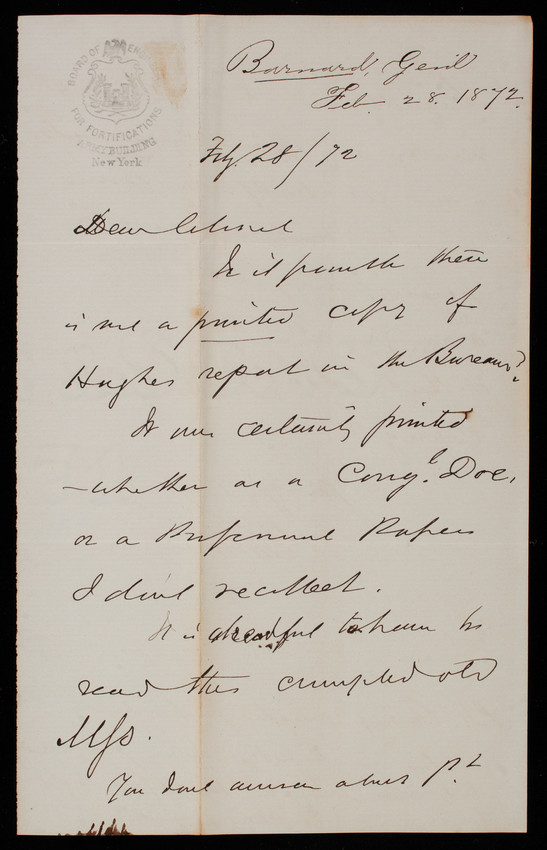 BOARD OF ENG
FOR FORTIFICATIONS
ARMY BUILDING
New York
Barnard, Genl
Feb. 28. 1872.
Feby. 28/72
Dear Colonel
Is it possible there
is not a printed copy of
Hughes report in the Bureau?
It was certainly printed
– whether as a Congl. Doc.
or a Professional Papers
I don't recollect.
It is dreadful to have to
read this crumpled old
Mss.
You don't answer about